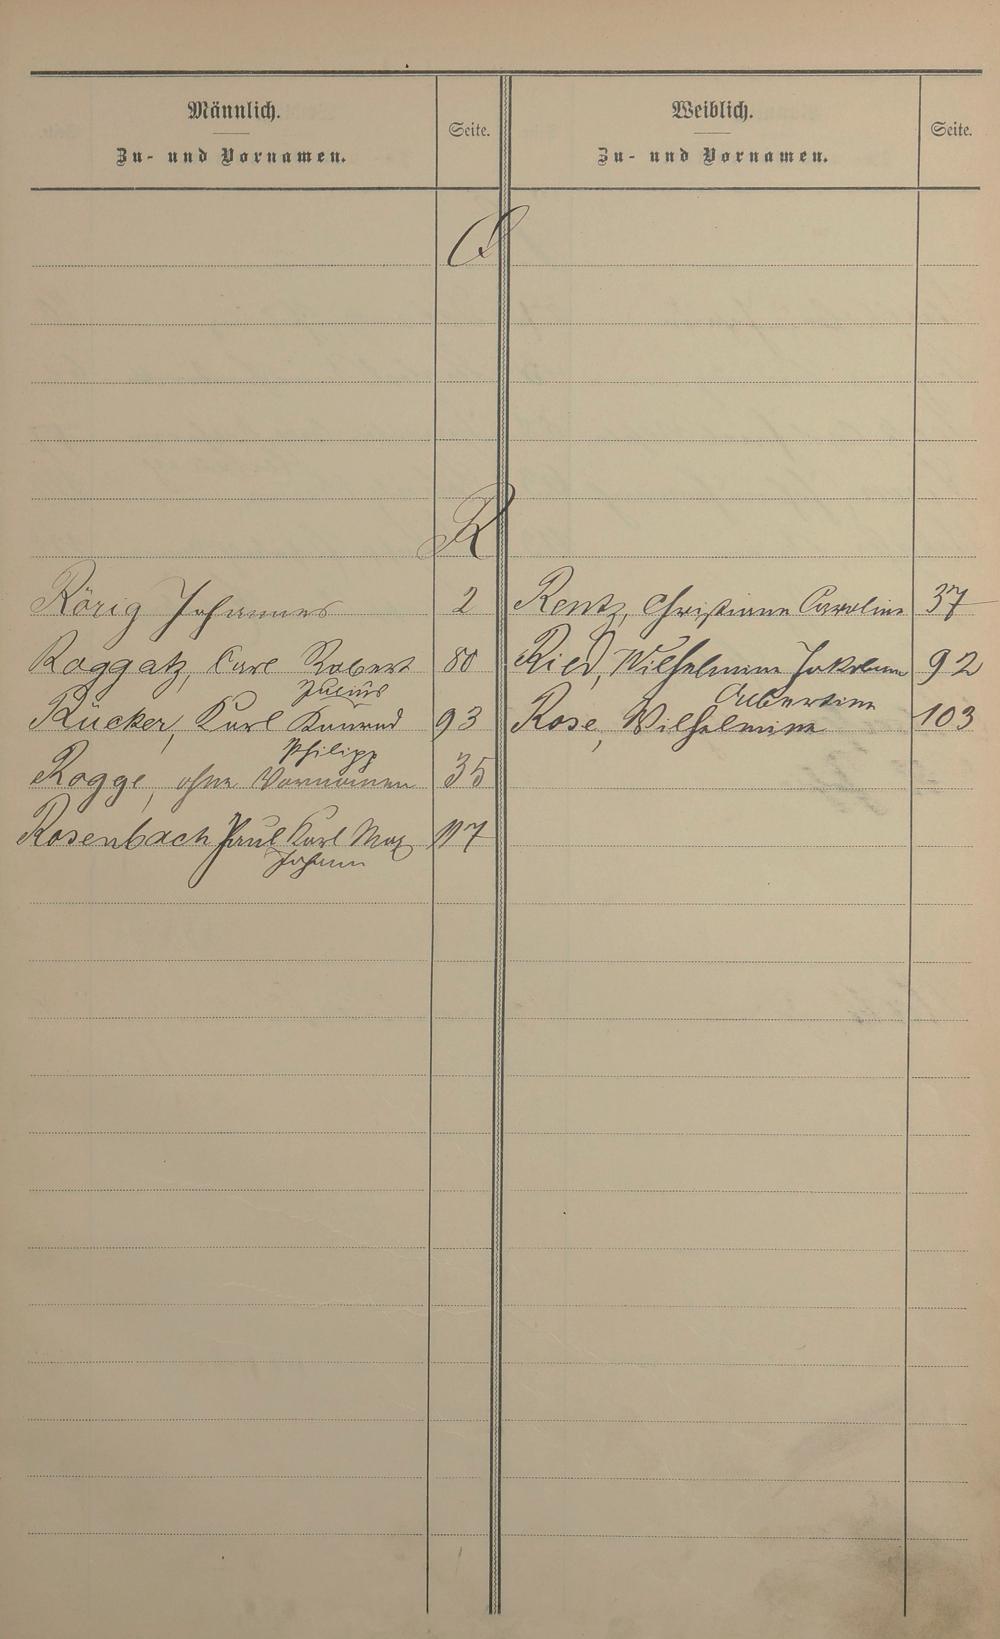 Männlich.
Zu- und Vornamen.
Seite.
Weiblich.
Zu- und Vornamen.
Seite.
Q
R
Rörig Johannes 2
Rentz, Christiane Caroline 37
Roggatz, Carl Robert 80
Julius
Ried, Wilhelmine Jakobine 92
Albertine
Rücker, Karl Konrad 93
Philipp
Rose, Wilhelmine 103
Rogge, ohne Vornamen 35
Rosenbach Paul Karl Max 117
Johann